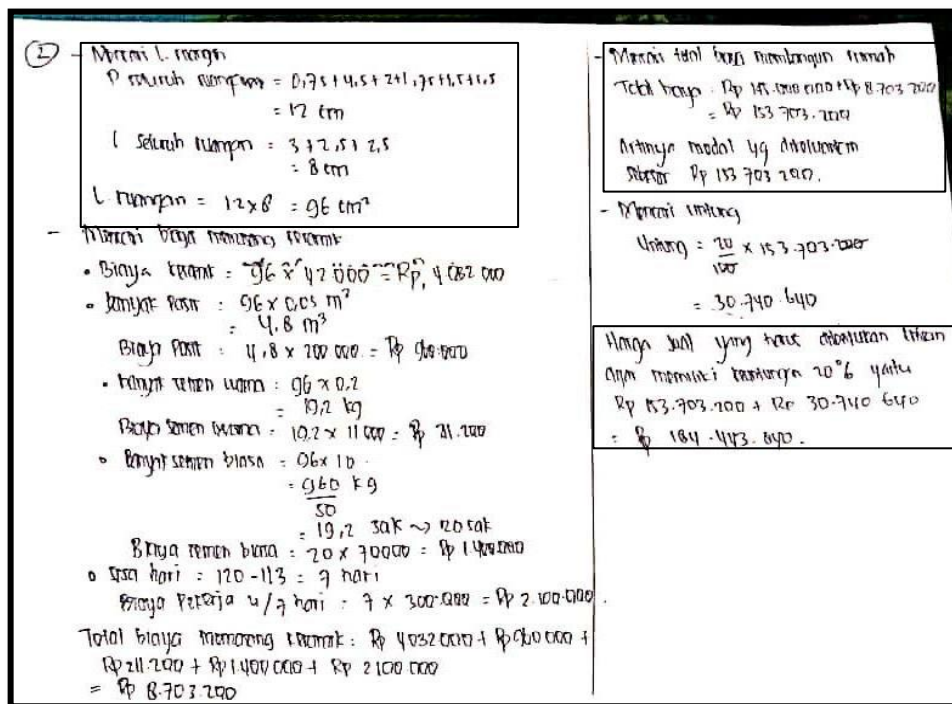 ② - Mencari l. ruangan
P seluruh ruangan = 0,75+4,5+2+1,75+1,5+1,5
= 12 cm
l seluruh ruangan = 3+2,5+2,5
= 8 cm
L ruangan = 12x8 = 96 cm²
- Mencari biaya memasang keramik
• Biaya keramik = 96 x 42 000 = Rp, 4 032 000
• Banyak Pasir : 96 x 0,05 m³
= 4,8 m³
Biaya Pasir : 4,8 x 200 000 = Rp 960.000
• banyak semen warna : 96 x 0.2
= 19,2 kg
Biaya semen berwarna = 19,2 x 11 000 = Rp 21.200
• Banyak semen biasa = 96x 10
= 960 kg
50
= 19,2 sak ~> 20 sak
Biaya semen biasa = 20 x 70000 = Rp 1.400.000
• sisa hari = 120-113 = 7 hari
Biaya Pekerja u/7 hari = 7 x 300.000 = Rp 2.100.000.
Total biaya memasang keramik : Rp 4032000 + Rp 960 000 +
Rp 211.200 + Rp 1.400 000 + Rp 2100.000
= Rp 8.703.200
- Mencari total biaya membangun rumah
Total biaya : Rp 145.000 000 + Rp 8.703 200
= Rp 153 703.200
Artinya modal yg dikeluarkan
sebesar Rp 153 703 200.
- Mencari untung
Untung = 20 x 153.703.200
100
= 30.740.640
Harga jual yang harus
agar memiliki keuntungan 20% yaitu
Rp 153.703.200 + Rp 30.740 640
= Rp 184.443.840.